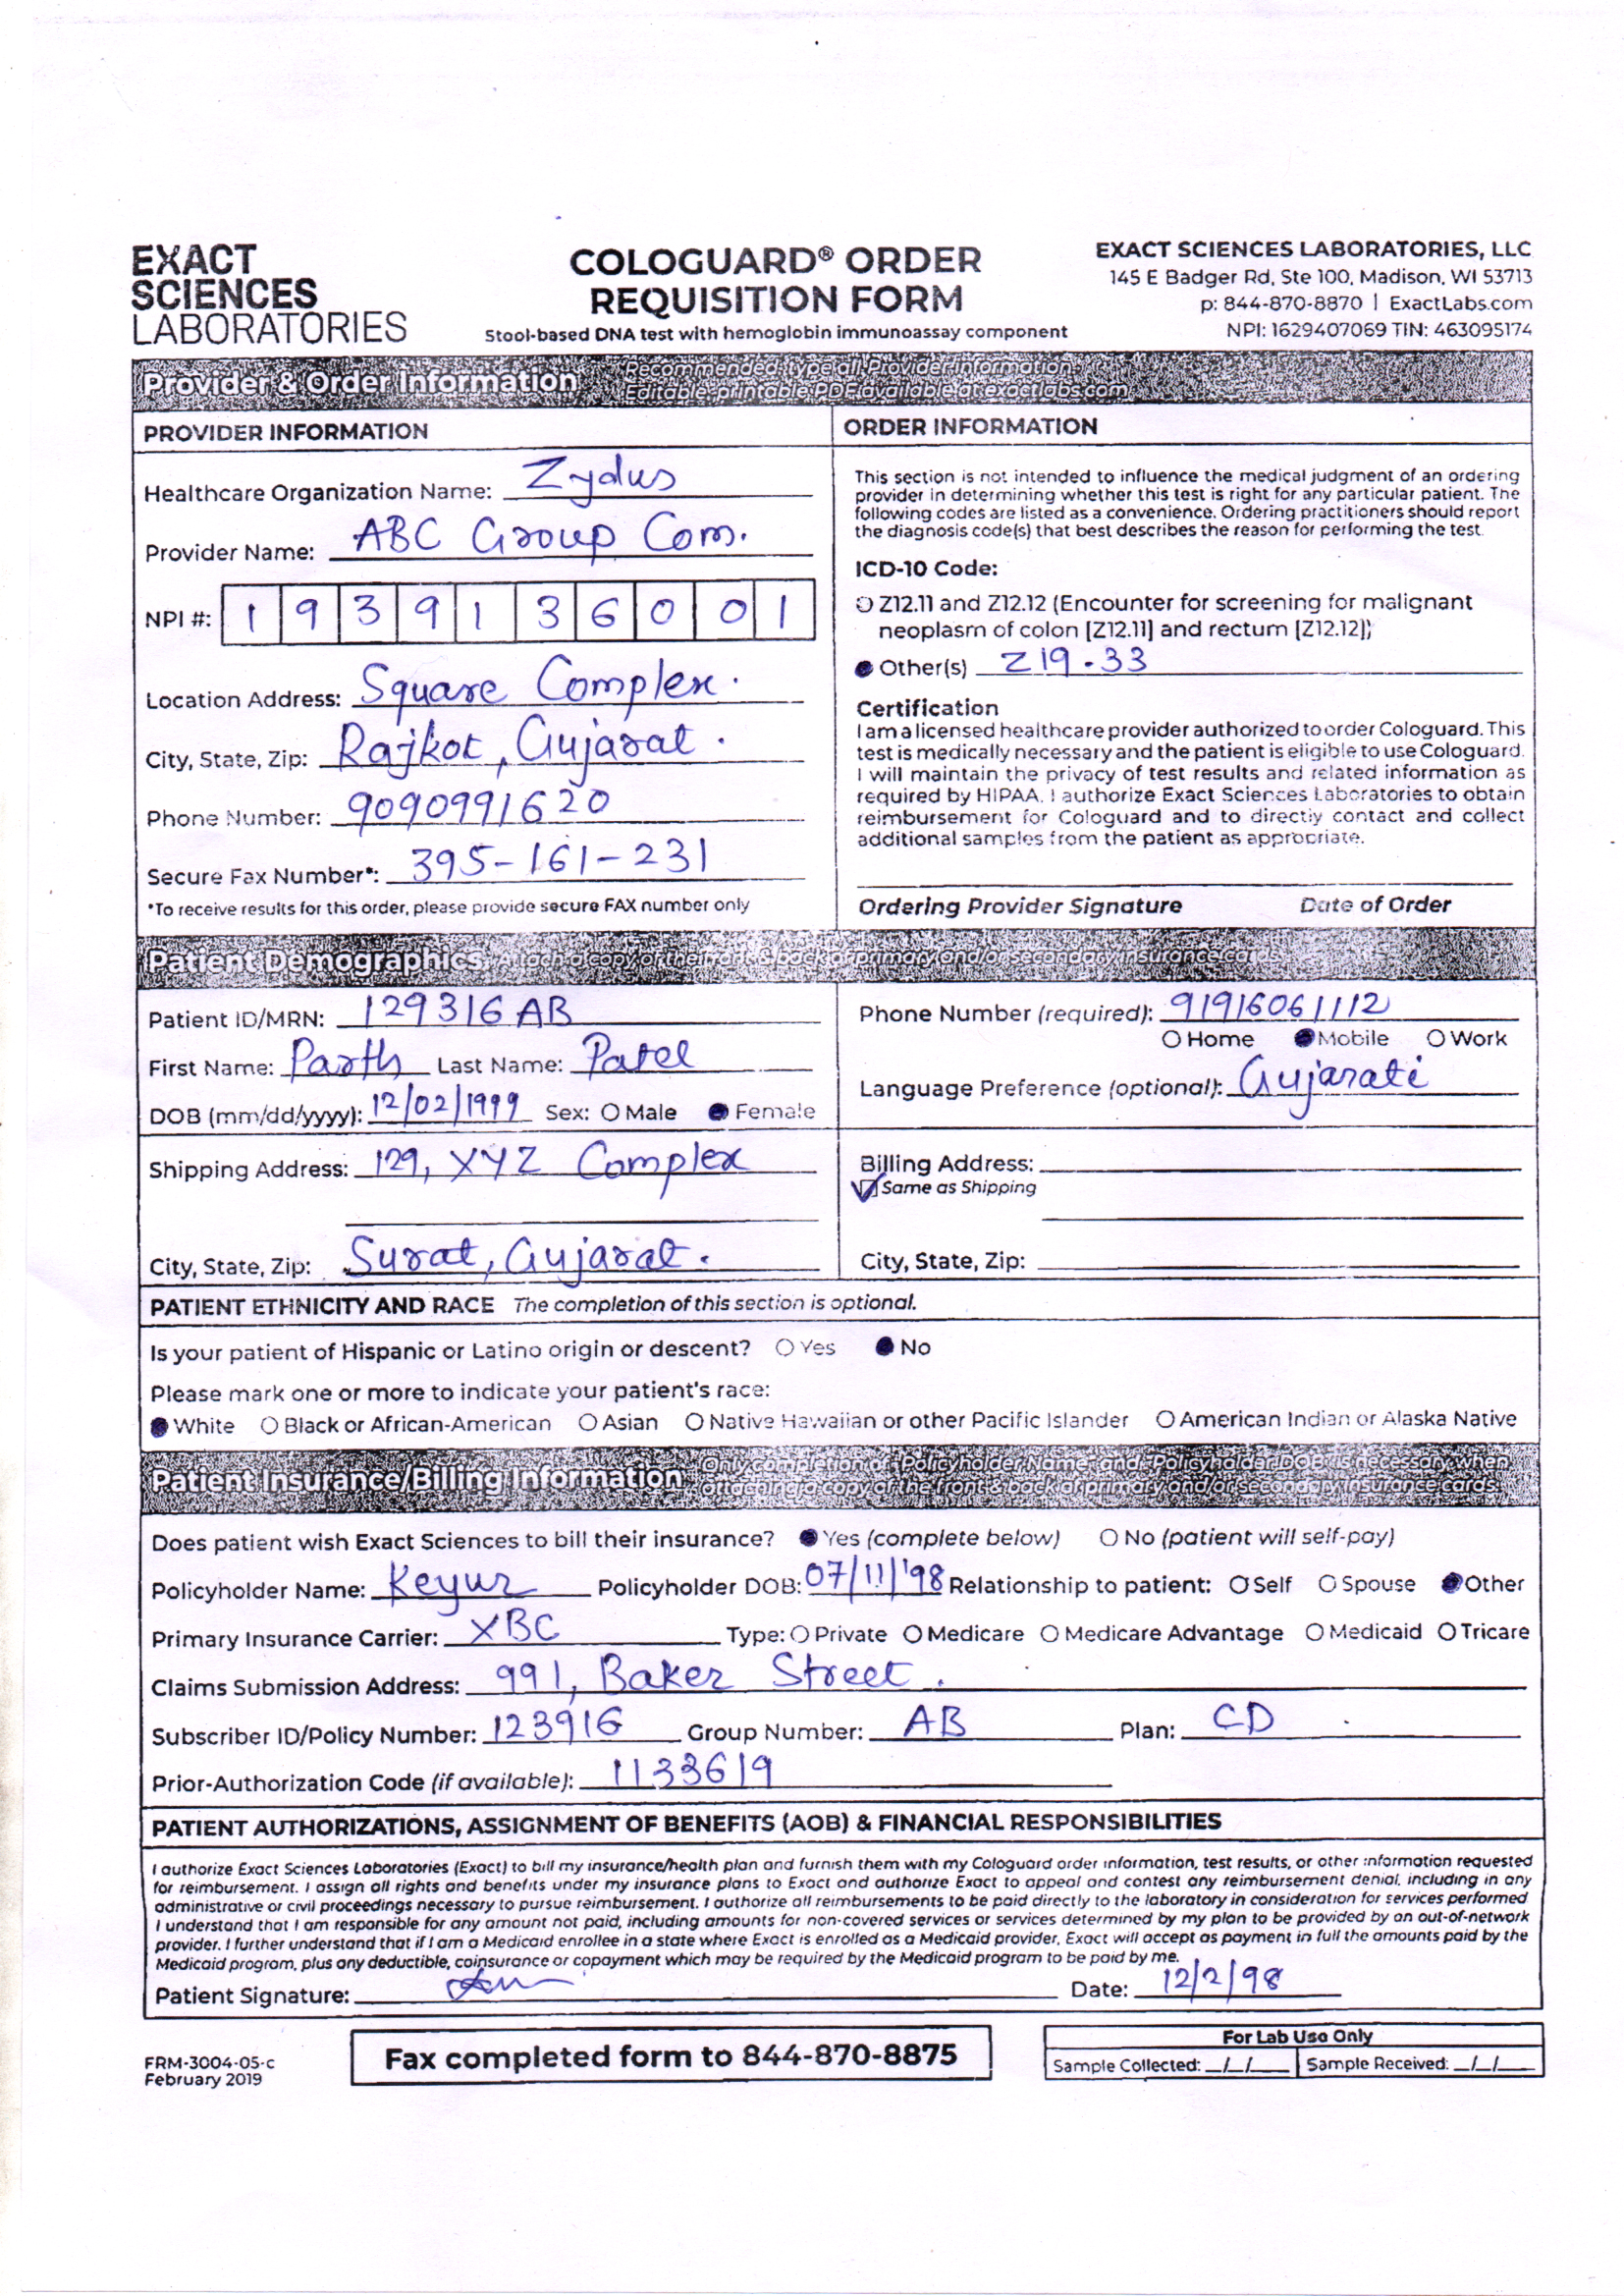 EXACT
SCIENCES
LABORATORIES
COLOGUARD® ORDER
REQUISITION FORM
Stool-based DNA test with hemoglobin immunoassay component
EXACT SCIENCES LABORATORIES, LLC
145 E Badger Rd, Ste 100, Madison, WI 53713
p: 844-870-8870 | ExactLabs.com
NPI: 1629407069 TIN: 463095174
Provider & Order Information
Recommended: type all Provider Information.
Editable, printable PDF available at exactlabs.com
PROVIDER INFORMATION
Healthcare Organization Name: Zydus
Provider Name: ABC Group Com.
NPI #: 1 9 3 9 1 3 6 0 0 1
Location Address: Square Complex.
City, State, Zip: Rajkot, Gujarat.
Phone Number: 9090991620
Secure Fax Number*: 395-161-231
*To receive results for this order, please provide secure FAX number only
ORDER INFORMATION
This section is not intended to influence the medical judgment of an ordering
provider in determining whether this test is right for any particular patient. The
following codes are listed as a convenience. Ordering practitioners should report
the diagnosis code(s) that best describes the reason for performing the test.
ICD-10 Code:
Z12.11 and Z12.12 (Encounter for screening for malignant
neoplasm of colon [Z12.11] and rectum [Z12.12])
Other(s) Z19.33
Certification
I am a licensed healthcare provider authorized to order Cologuard. This
test is medically necessary and the patient is eligible to use Cologuard.
I will maintain the privacy of test results and related information as
required by HIPAA. I authorize Exact Sciences Laboratories to obtain
reimbursement for Cologuard and to directly contact and collect
additional samples from the patient as appropriate.
Ordering Provider Signature Date of Order
Patient Demographics Attach a copy of the front & back of primary and/or secondary insurance cards
Patient ID/MRN: 129316 AB
First Name: Parth Last Name: Patel
DOB (mm/dd/yyyy): 12/02/1999 Sex: Male Female
Phone Number (required): 9191606 1112
Home Mobile Work
Language Preference (optional): Gujarati
Shipping Address: 129, XYZ Complex
City, State, Zip: Surat, Gujarat.
Billing Address:
Same as Shipping
City, State, Zip:
PATIENT ETHNICITY AND RACE The completion of this section is optional.
Is your patient of Hispanic or Latino origin or descent? Yes No
Please mark one or more to indicate your patient's race:
White Black or African-American Asian Native Hawaiian or other Pacific Islander American Indian or Alaska Native
Patient Insurance/Billing Information
Only completion of Policyholder Name and Policyholder DOB is necessary when
attaching a copy of the front & back of primary and/or secondary insurance cards.
Does patient wish Exact Sciences to bill their insurance? Yes (complete below) No (patient will self-pay)
Policyholder Name: Keyur Policyholder DOB: 07/11/'98 Relationship to patient: Self Spouse Other
Primary Insurance Carrier: XBC Type: Private Medicare Medicare Advantage Medicaid Tricare
Claims Submission Address: 991, Baker Street.
Subscriber ID/Policy Number: 123916 Group Number: AB Plan: CD
Prior-Authorization Code (if available): 1133619
PATIENT AUTHORIZATIONS, ASSIGNMENT OF BENEFITS (AOB) & FINANCIAL RESPONSIBILITIES
I authorize Exact Sciences Laboratories (Exact) to bill my insurance/health plan and furnish them with my Cologuard order information, test results, or other information requested
for reimbursement. I assign all rights and benefits under my insurance plans to Exact and authorize Exact to appeal and contest any reimbursement denial, including in any
administrative or civil proceedings necessary to pursue reimbursement. I authorize all reimbursements to be paid directly to the laboratory in consideration for services performed.
I understand that I am responsible for any amount not paid, including amounts for non-covered services or services determined by my plan to be provided by an out-of-network
provider. I further understand that if I am a Medicaid enrollee in a state where Exact is enrolled as a Medicaid provider, Exact will accept as payment in full the amounts paid by the
Medicaid program, plus any deductible, coinsurance or copayment which may be required by the Medicaid program to be paid by me.
Patient Signature: Date: 12/2/98
FRM-3004-05-c
February 2019
Fax completed form to 844-870-8875
For Lab Use Only
Sample Collected: _/_/_ Sample Received: _/_/_